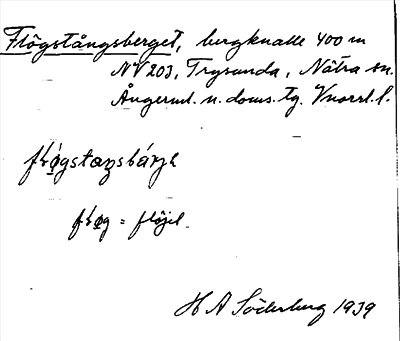 Flögstångsberget, bergknalle 400 m
NV 203, Trysunda, Nätra sn.
Ångerml. n. doms. tg. Vnorrl. l.
fłøgstaŋsbárjə
fłøg = flöjel.
H A Söderberg 1939